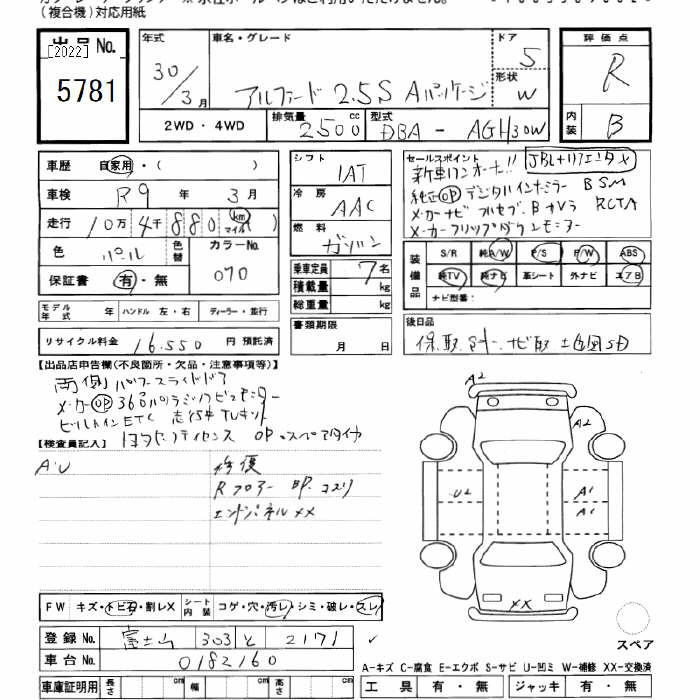 (複合機)対応用紙
出品No.
[2022]
5781
年式
30/3月
車名・グレード
アルファード 2.5S Aパッケージ
ドア
5
形状
W
評価点
R
内装
B
2WD・4WD
排気量
2500cc
型式
DBA - AGH30W
車歴 自家用・( )
車検 R9年 3月
走行 10万4千880km(マイル)
色 パール
色替
カラーNo.
070
保証書 有・無
シフト
IAT
冷房
AAC
燃料
ガソリン
乗車定員 7名
積載量 kg
総重量 kg
セールスポイント
新車ワンオーナー!! JBL+リアエンタX
純正OP デジタルインナーミラー BSM
メーカーナビ フルセグ Bナビラ RCTA
メーカーフリップダウンモニター
装備品
S/R 純A/W P/S P/W ABS
純TV 純ナビ 革シート 外ナビ エアB
ナビ型番:
モデル年式 年 ハンドル 左・右 ディーラー・並行
リサイクル料金 16,550 円 預託済
書類期限
月 日
後日品
保.取.
【出品店申告欄(不良箇所・欠品・注意事項等)】
両側パワースライドドア
メーカーOP
ビルトインETC
OP.スペアタイヤ
【検査員記入】
A・U
修復
Rフロアー BP.コスリ
エンドパネルXX
A2
A2
U2
A1
A1
XX
スペア
FW キズ・トビ石・割レX シート内装 コゲ・穴・汚レ・シミ・破レ・スレ
登録No. 富士山 303 と 2171
車台No. 0182160
車庫証明用 長さ cm 幅 cm 高さ cm
A-キズ C-腐食 E-エクボ S-サビ U-凹ミ W-補修 XX-交換済
工具 有・無 ジャッキ 有・無